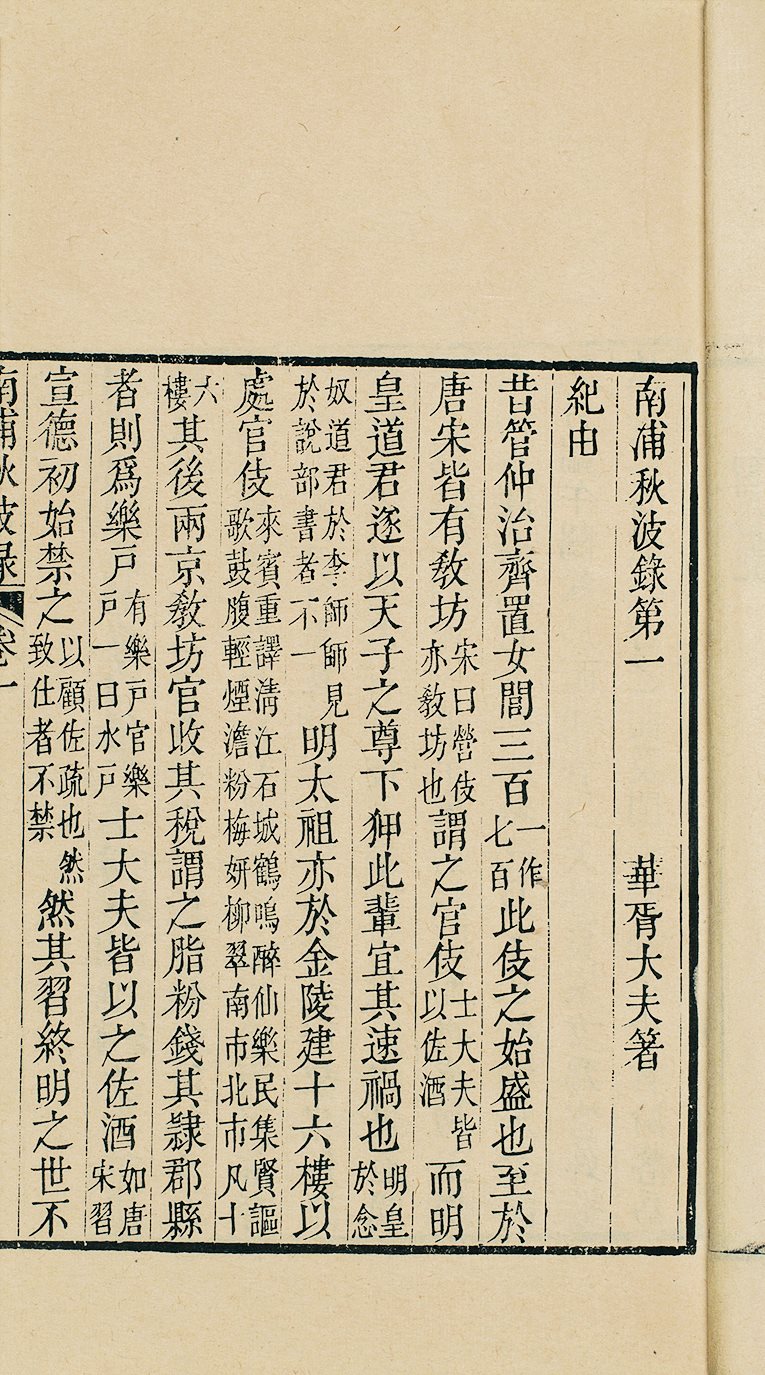 南浦秋波錄第一　華胥大夫箸
紀由
昔管仲治齊置女閭三百一作七百此伎之始盛也至於
唐宋皆有敎坊宋曰營伎亦敎坊也謂之官伎士大夫皆以佐酒而明
皇道君遂以天子之尊下狎此輩宜其速禍也明皇於念
奴道君於李師師見於說部書者不一明太祖亦於金陵建十六樓以
處官伎來賓重譯淸江石城鶴鳴醉仙樂民集賢謳歌鼓腹輕煙澹粉梅妍柳翠南市北市凡十
六樓其後兩京敎坊官收其稅謂之脂粉錢其隸郡縣
者則爲樂戶有樂戶官樂戶一曰水戶士大夫皆以之佐酒如唐宋習
宣德初始禁之以顧佐疏也然致仕者不禁然其習終明之世不
南浦秋波錄　卷一